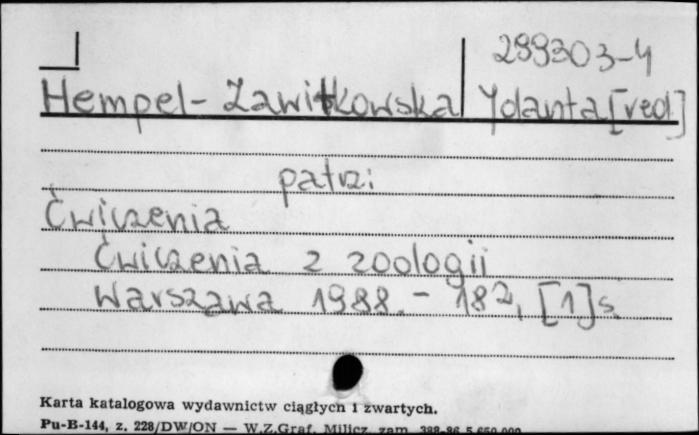 299303-4
Hempel-Zawitkowska Jolanta [red]
patrz:
Ćwiczenia
Ćwiczenia z zoologii
Warszawa 1988. - 182, [1] s.
Karta katalogowa wydawnictw ciągłych i zwartych.
Pu-B-144, z. 228/DW/ON — W.Z.Graf. Milicz, zam. 388-86 5.650.000